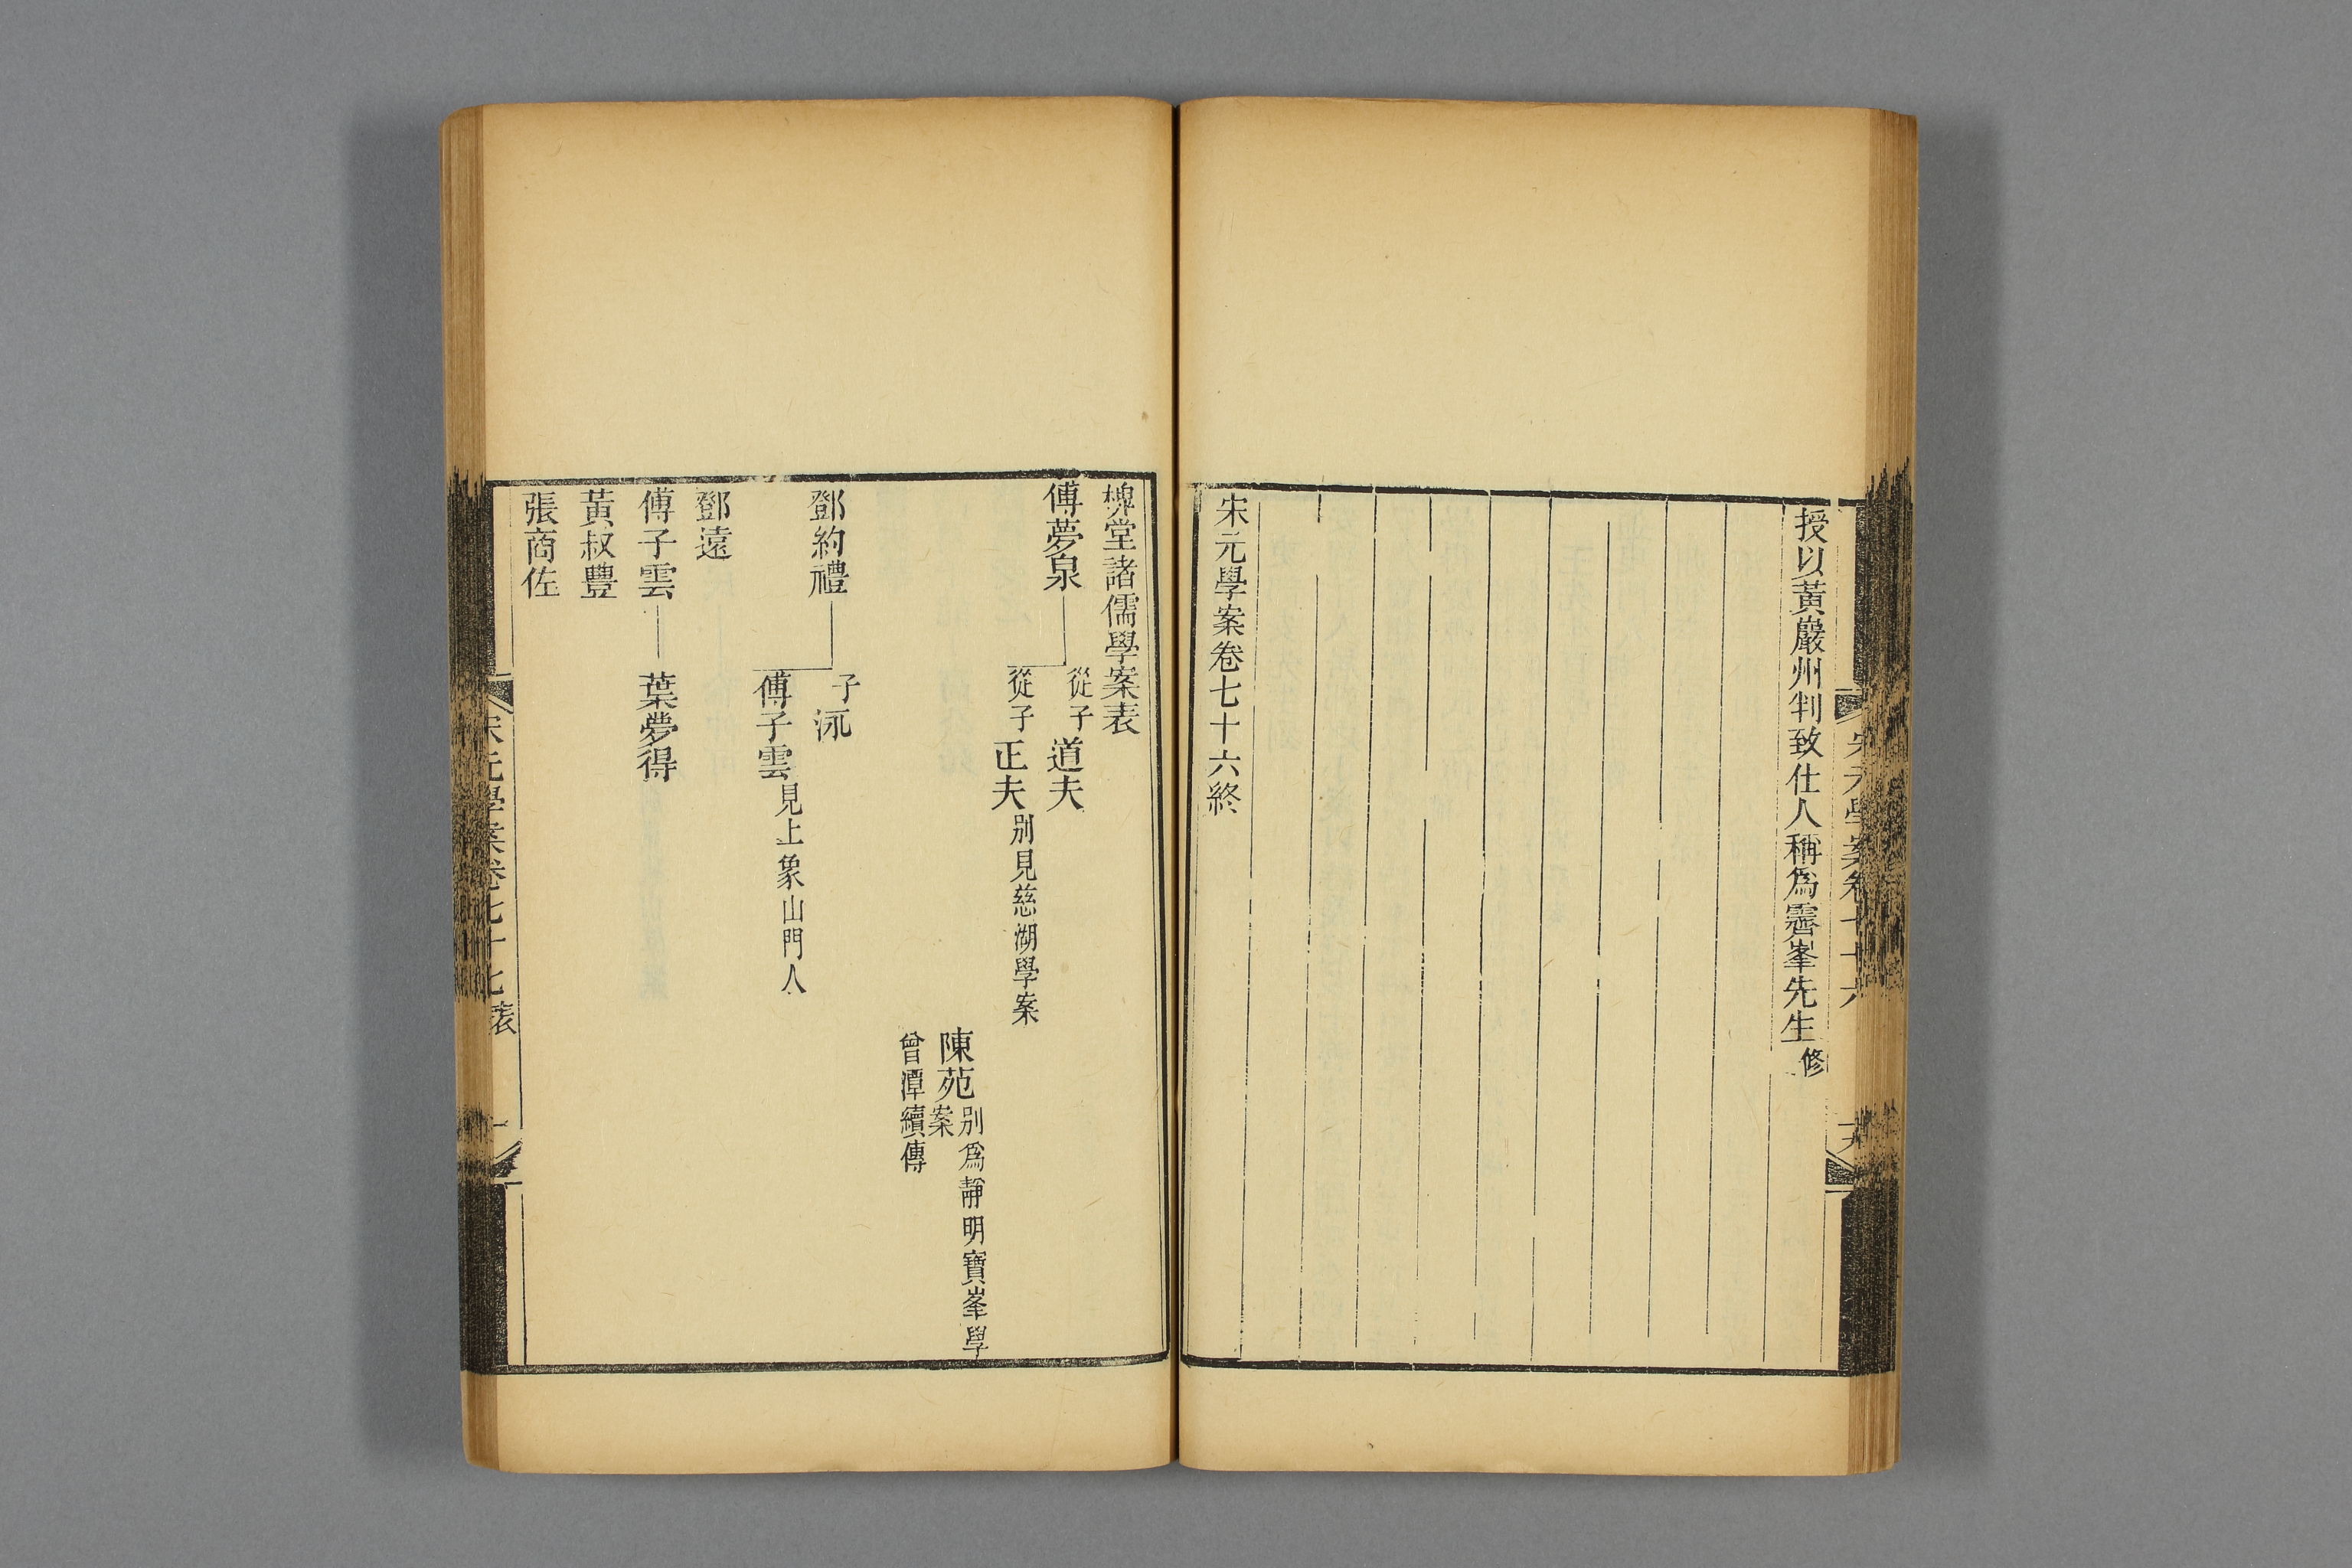 宋元學案卷七十六
大
授以黃巖州判致仕人稱爲霽峯先生修
宋元學案卷七十六終
槐堂諸儒學案表
傅夢泉
從子道夫
從子正夫別見慈湖學案
陳苑別爲靜明寶峯學
案
曾潭續傳
鄧約禮
子泳
傅子雲見上象山門人
鄧遠
傅子雲
葉夢得
黃叔豐
張商佐
宋元學案卷七十七表
一